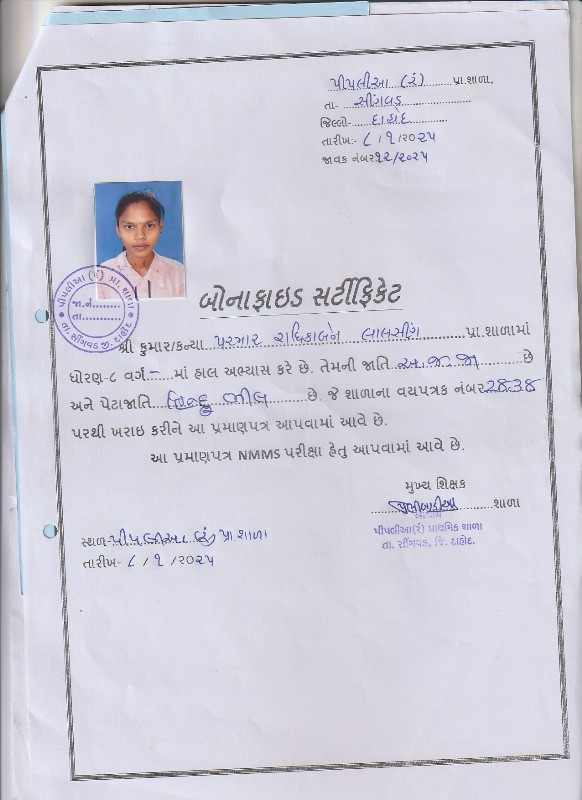 પીપલીઆ (રં) પ્રા.શાળા.
તા- સીંગવડ
જિલ્લો- દાહોદ
તારીખ:- ૮/૧/૨૦૨૫
જાવક નંબર ૧૨/૨૦૨૫
પીપલીઆ (રં) પ્રા. શાળા
જા.નં.
તા.
તા. સીંગવડ જી. દાહોદ
બોનાફાઇડ સર્ટીફિકેટ
શ્રી કુમાર/કન્યા પરમાર રાધિકાબેન લાલસીંગ પ્રા.શાળામાં
ધોરણ-૮ વર્ગ - માં હાલ અભ્યાસ કરે છે. તેમની જાતિ અ.જ.જા છે
અને પેટાજાતિ હિન્દુ ભીલ છે. જે શાળાના વયપત્રક નંબર 2838
પરથી ખરાઇ કરીને આ પ્રમાણપત્ર આપવામાં આવે છે.
આ પ્રમાણપત્ર NMMS પરીક્ષા હેતુ આપવામાં આવે છે.
મુખ્ય શિક્ષક
શાળા
આચાર્ય
પીપલીઆ(રં) પ્રાથમિક શાળા
તા. સીંગવડ, જિ. દાહોદ.
સ્થળ- પીપલીઆ (રં) પ્રા.શાળા
તારીખ- ૮/૧/૨૦૨૫